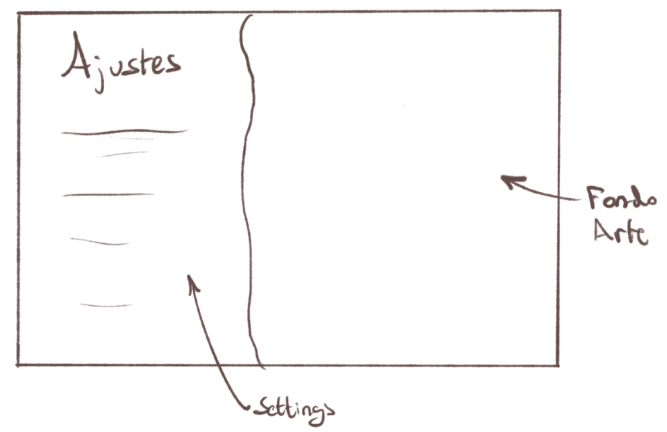 Ajustes
Fondo
Arte
Settings